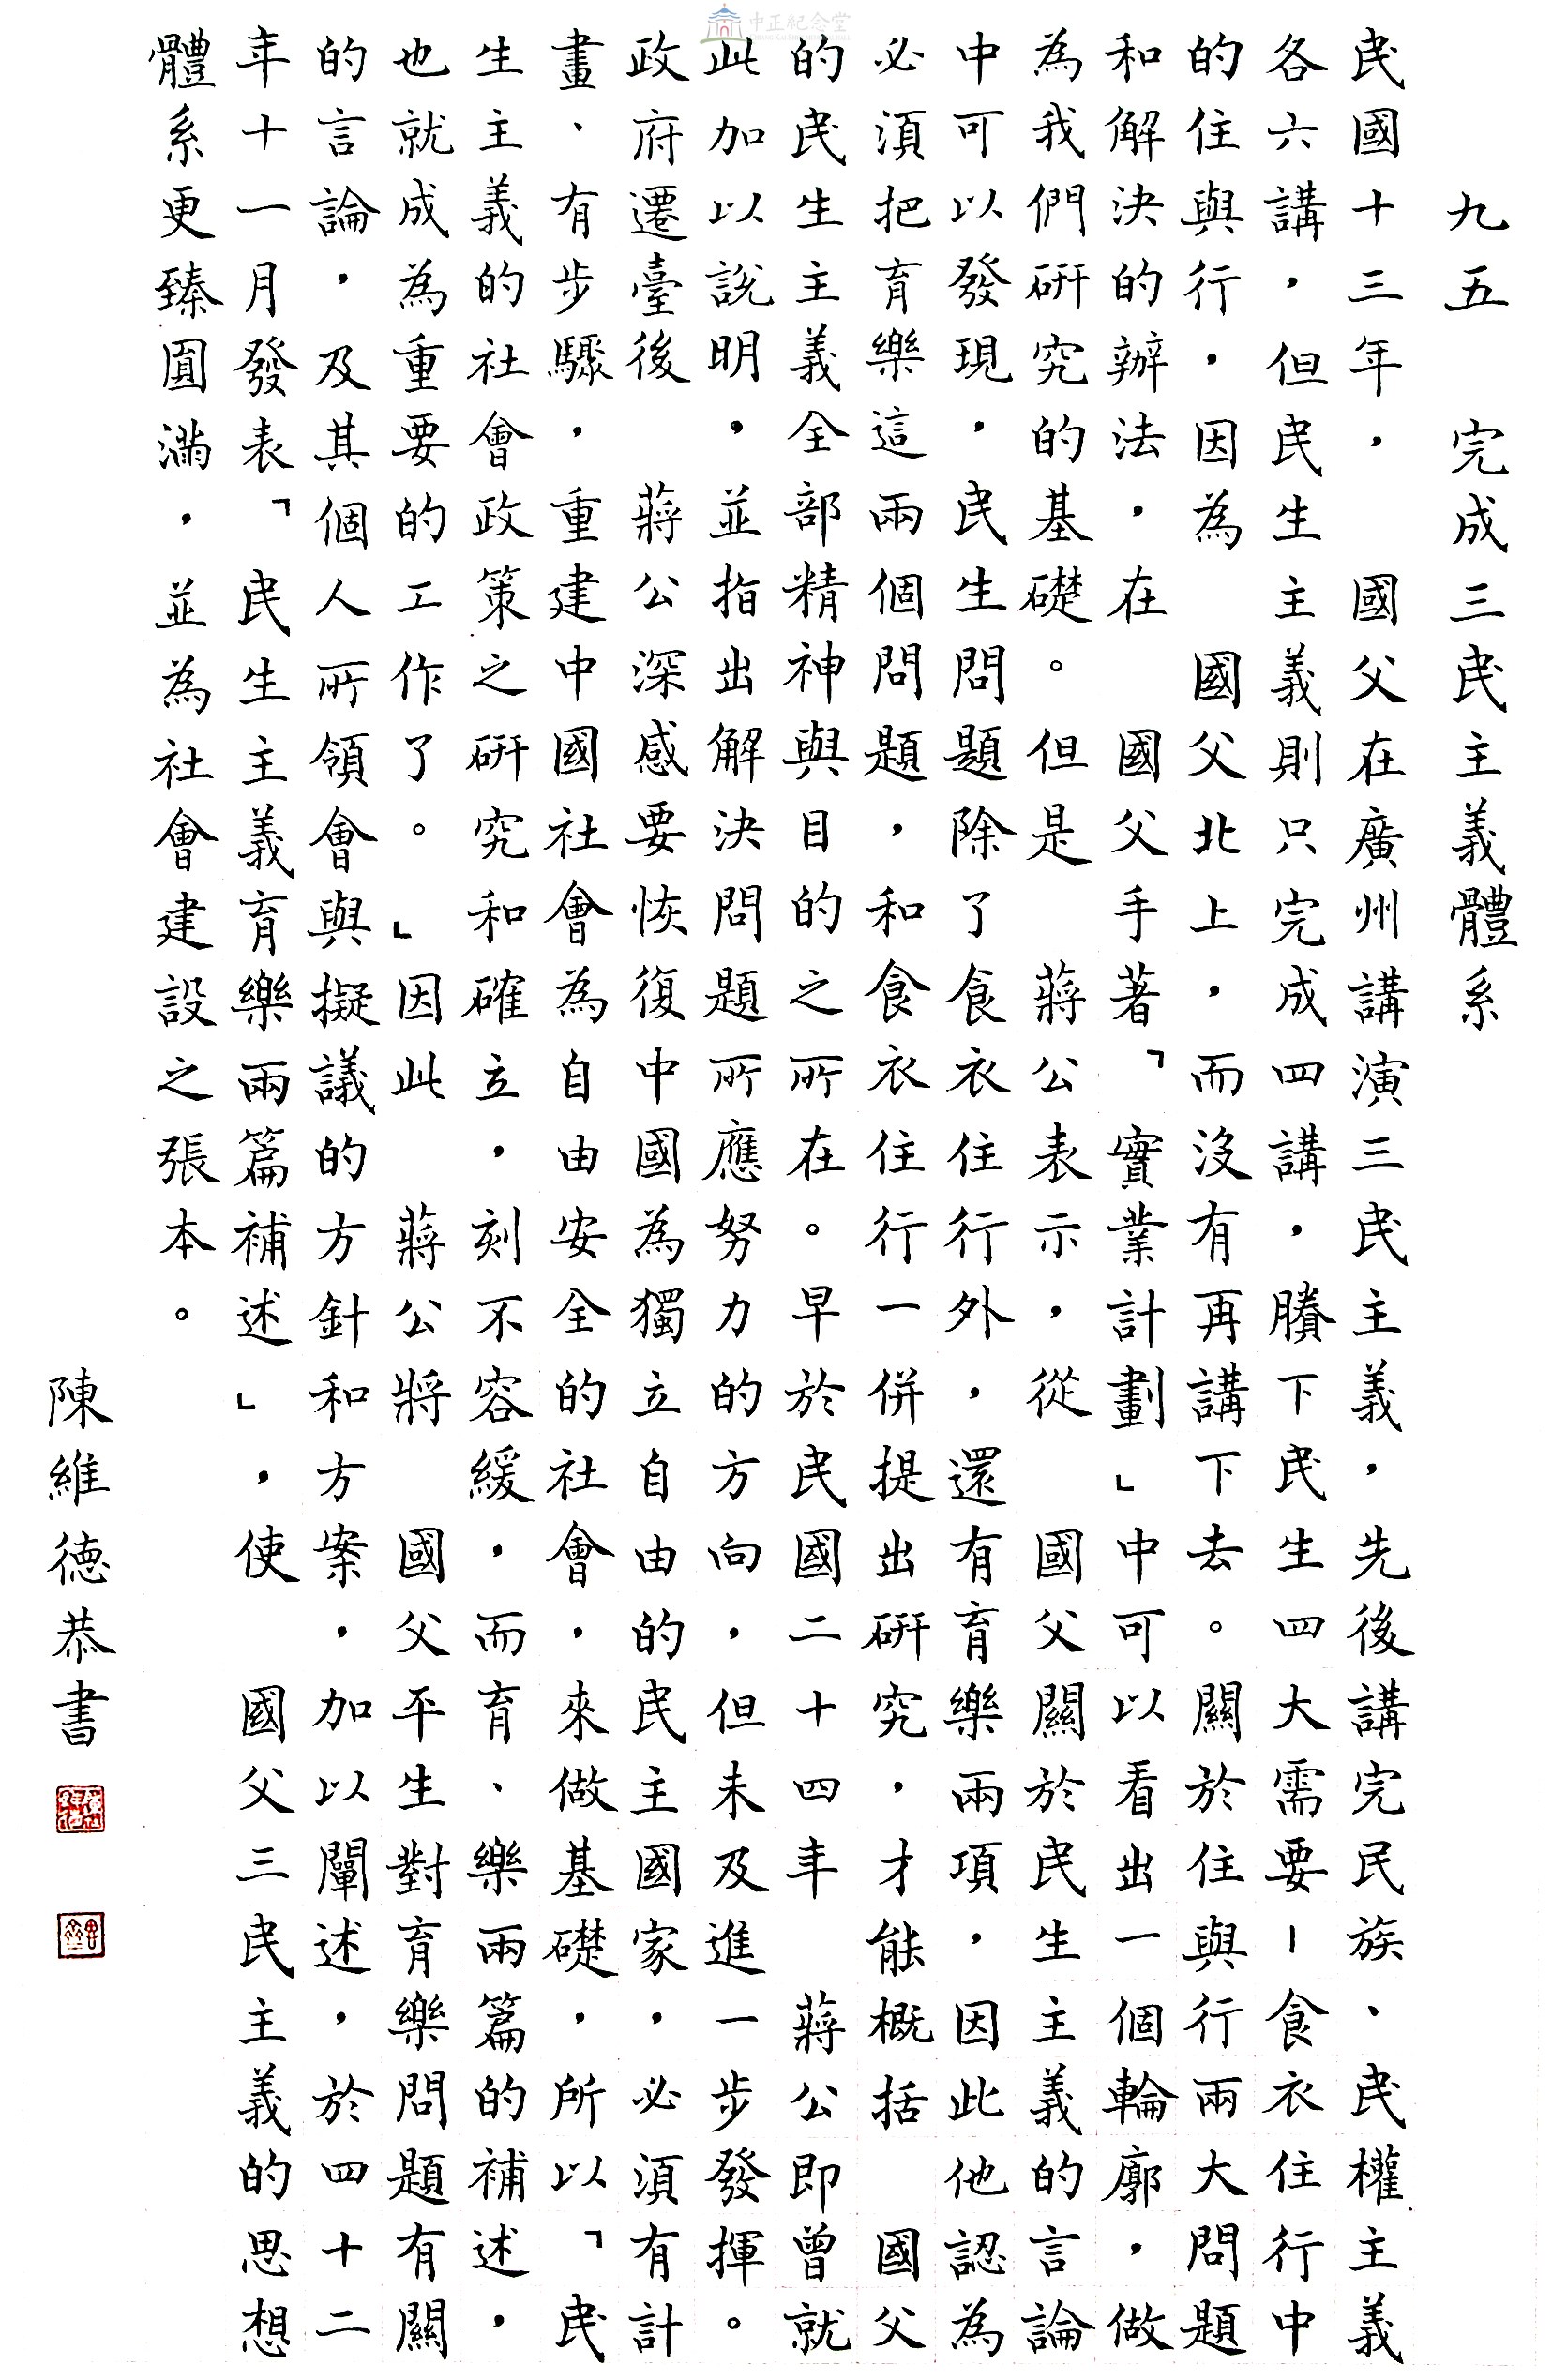 中正紀念堂
九五　完成三民主義體系
民國十三年，　國父在廣州講演三民主義，先後講完民族、民權主義
各六講，但民生主義則只完成四講，賸下民生四大需要－食衣住行中
的住與行，因為　國父北上，而沒有再講下去。關於住與行兩大問題
和解決的辦法，在　國父手著「實業計劃」中可以看出一個輪廓，做
為我們研究的基礎。但是　蔣公表示，從　國父關於民生主義的言論
中可以發現，民生問題除了食衣住行外，還有育樂兩項，因此他認為
必須把育樂這兩個問題，和食衣住行一併提出研究，才能概括　國父
的民生主義全部精神與目的之所在。早於民國二十四年　蔣公即曾就
此加以說明，並指出解決問題所應努力的方向，但未及進一步發揮。
政府遷臺後　蔣公深感要恢復中國為獨立自由的民主國家，必須有計
畫、有步驟，重建中國社會為自由安全的社會，來做基礎，所以「民
生主義的社會政策之研究和確立，刻不容緩，而育、樂兩篇的補述，
也就成為重要的工作了。」因此　蔣公將　國父平生對育樂問題有關
的言論，及其個人所領會與擬議的方針和方案，加以闡述，於四十二
年十一月發表「民生主義育樂兩篇補述」，使　國父三民主義的思想
體系更臻圓滿，並為社會建設之張本。
陳維德恭書